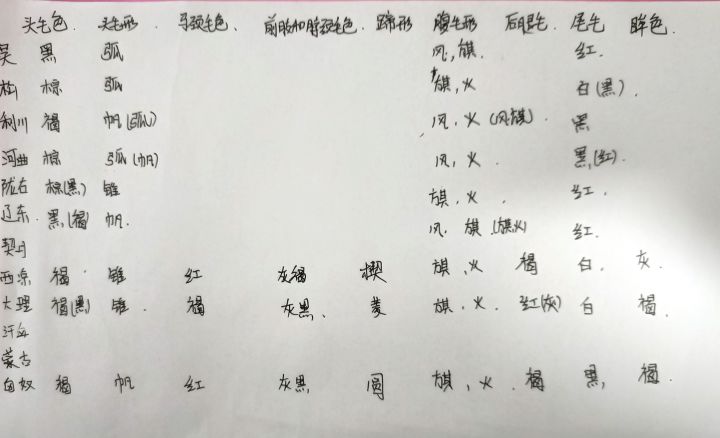 头毛色. 头毛形. 弓颈毛色、前肢和脖颈毛色. 蹄形 腹毛形 后腿毛 尾毛 眸色.
吴 黑 弧 风,旗. 红.
松 棕 弧 旗,火 白(黑).
利川 褐 帆(弧) 风.火(风旗). 黑
河曲 棕 弧(帆) 风,火. 黑,(红).
陇右 棕(黑) 锥 旗.火. 红.
辽东. 黑,(褐) 帆. 风.旗(旗火) 红.
契丹
西凉 褐 锥 红 灰褐 楔 旗.火 褐 白. 灰.
大理 褐(黑) 锥. 褐 灰黑、菱 旗.火. 红(灰) 白 褐.
汗血
蒙古
匈奴 褐 帆 红 灰黑 圆 旗,火. 褐 黑, 褐.